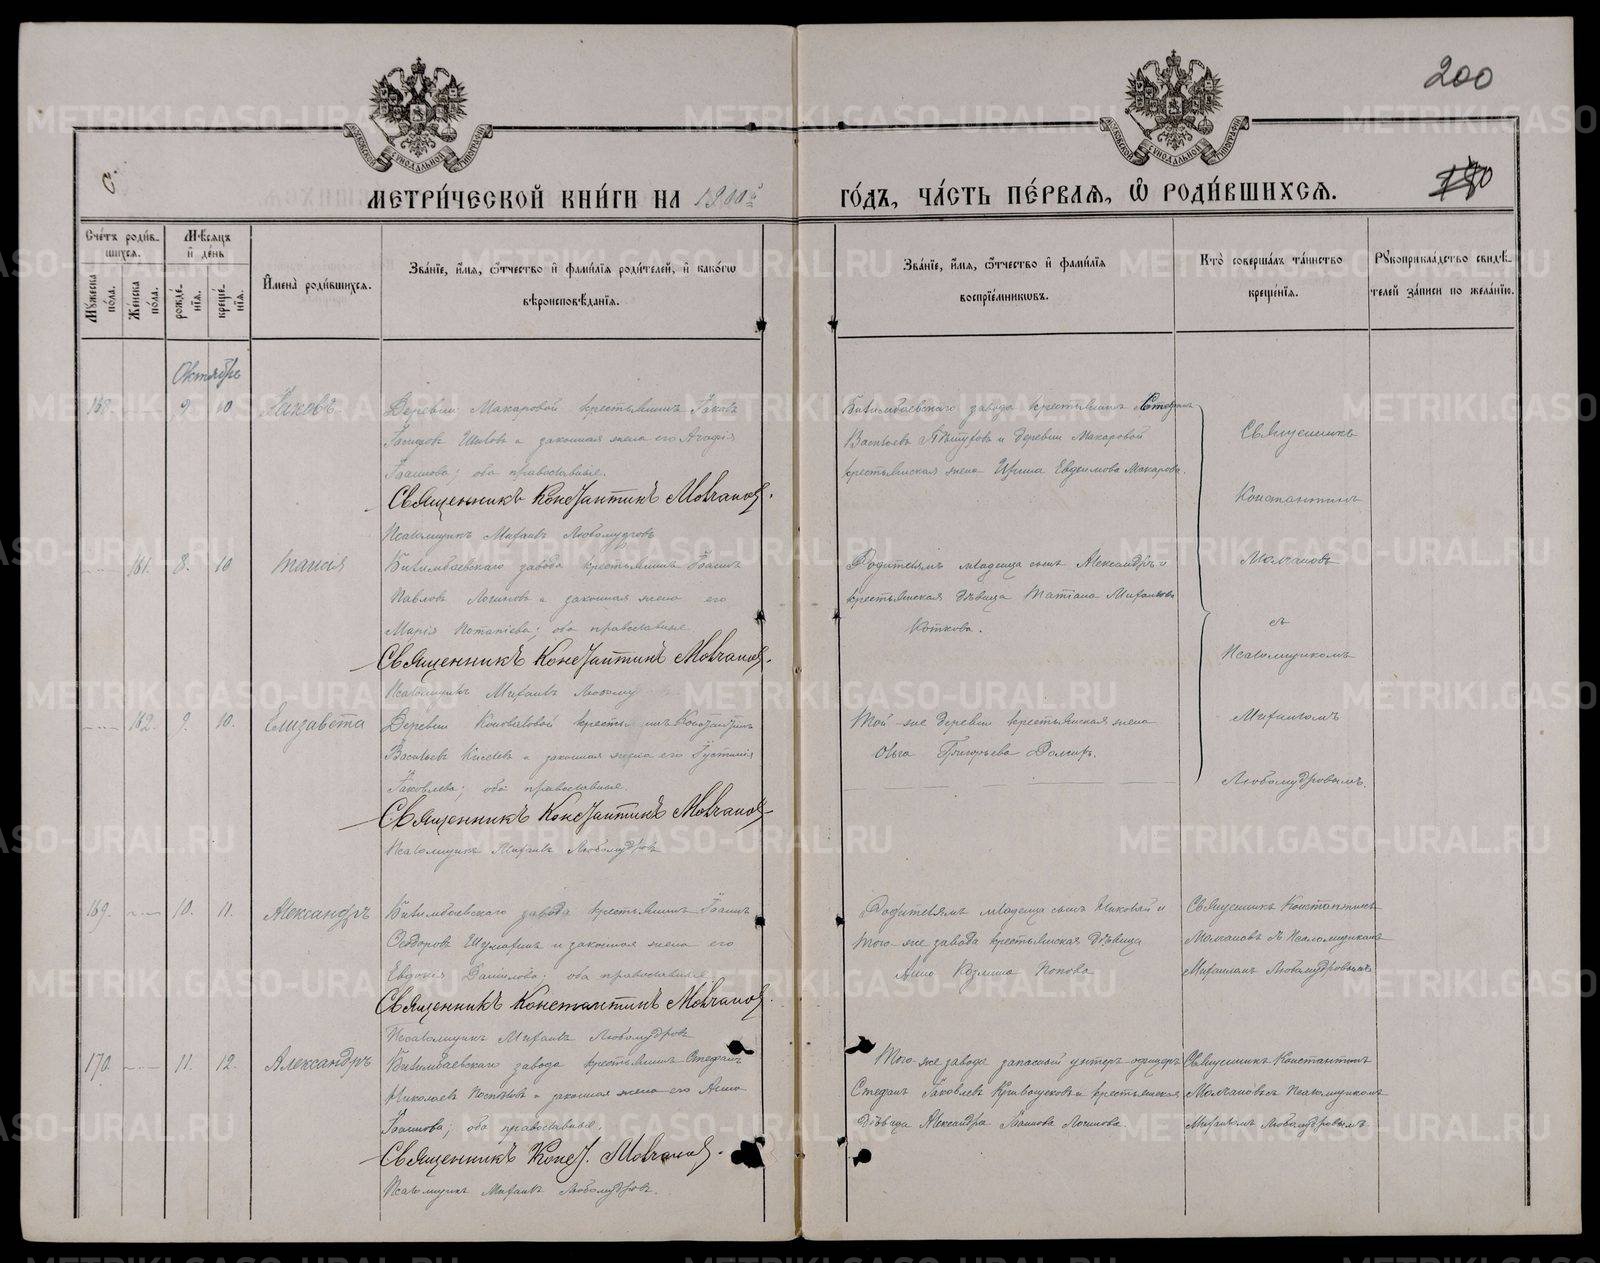 200
МОСКОВСКОЙ СѴНОДАЛЬНОЙ ТИПОГРАФІИ
МОСКОВСКОЙ СѴНОДАЛЬНОЙ ТИПОГРАФІИ
МЕТРИ́ЧЕСКОЙ КНИ́ГИ НА 1900й ГО́ДЪ, ЧА́СТЬ ПЕ́РВАЯ, Ѡ҆ РОДИ́ВШИХСЯ.
Сче́тъ роди́в-
шихся.
Мꙋ́жеска по́ла.
Же́нска по́ла.
Мѣ́сяцъ
и҆ де́нь
рожде́нїѧ.
креще́нїѧ.
И҆мена̀ роди́вшихся.
Зва́нїе, и҆́мѧ, ѻ҆́тчество и҆ фамѝлїѧ роди́телей, и҆ како́гѡ
вѣроисповѣ́данїѧ.
Зва́нїе, и҆́мѧ, ѻ҆́тчество и҆ фамѝлїѧ
воспрїе́мникѡвъ.
Кто̀ соверша́лъ та́инство
креще́нїѧ.
Рꙋкоприкла́дство свидѣ́-
телей за́писи по жела́нїю.
Октябрь
168. 9. 10 Іаковъ.
Деревни Макаровой крестьянинъ Іаковъ
и законная жена его Агафія
Іоаннова; оба православные.
Священникъ Константинъ Молчановъ.
Псаломщикъ Михаилъ Любомудровъ
Билимбаевскаго завода крестьянинъ Стефанъ
Васильевъ и деревни Макаровой
крестьянская жена Ирина Евдокимова Макарова.
Священникъ
Константинъ
Молчановъ
съ
Псаломщикомъ
Михаиломъ
Любомудровымъ.
161. 8. 10 Таисія
Билимбаевскаго завода крестьянинъ Іоаннъ
Павловъ Логиновъ и законная жена его
Марія Потапіева; оба православные
Священникъ Константинъ Молчановъ.
Псаломщикъ Михаилъ Любому
Родителямъ младенца сынъ Александръ и
крестьянская дѣвица Татіана Михаилова
Коткова.
162. 9. 10. Елизавета
Деревни Коноваловой крестьянинъ Константинъ
Васильевъ Киселевъ и законная жена его Іустинія
Іаковлева; оба православные.
Священникъ Константинъ Молчановъ
Псаломщикъ Михаилъ Любомудровъ
Той-же деревни крестьянская жена
Ольга Григорьева
169. 10. 11. Александръ
Билимбаевскаго завода крестьянинъ Іоаннъ
Ѳеодоровъ и законная жена его
Евдокія Данилова; оба православные
Священникъ Константинъ Молчановъ.
Псаломщикъ Михаилъ Любомудровъ
Родителямъ младенца сынъ Николай и
того-же завода крестьянская дѣвица
Анна Козмина Попова
Священникъ Константинъ
Молчановъ съ Псаломщикомъ
Михаиломъ Любомудровымъ
170. 11. 12. Александръ
Билимбаевскаго завода крестьянинъ Стефанъ
Николаевъ Поспѣловъ и законная жена его Анна
Іоаннова; оба православные.
Священникъ Конст. Молчановъ.
Псаломщикъ Михаилъ Любомудровъ.
Того-же завода запасный унтеръ-офицеръ
Стефанъ Іаковлевъ Кривощековъ и крестьянская
дѣвица Александра Іоаннова Логинова.
Священникъ Константинъ
Молчановъ съ Псаломщикомъ
Михаиломъ Любомудровымъ
METRIKI.GASO-URAL.RU